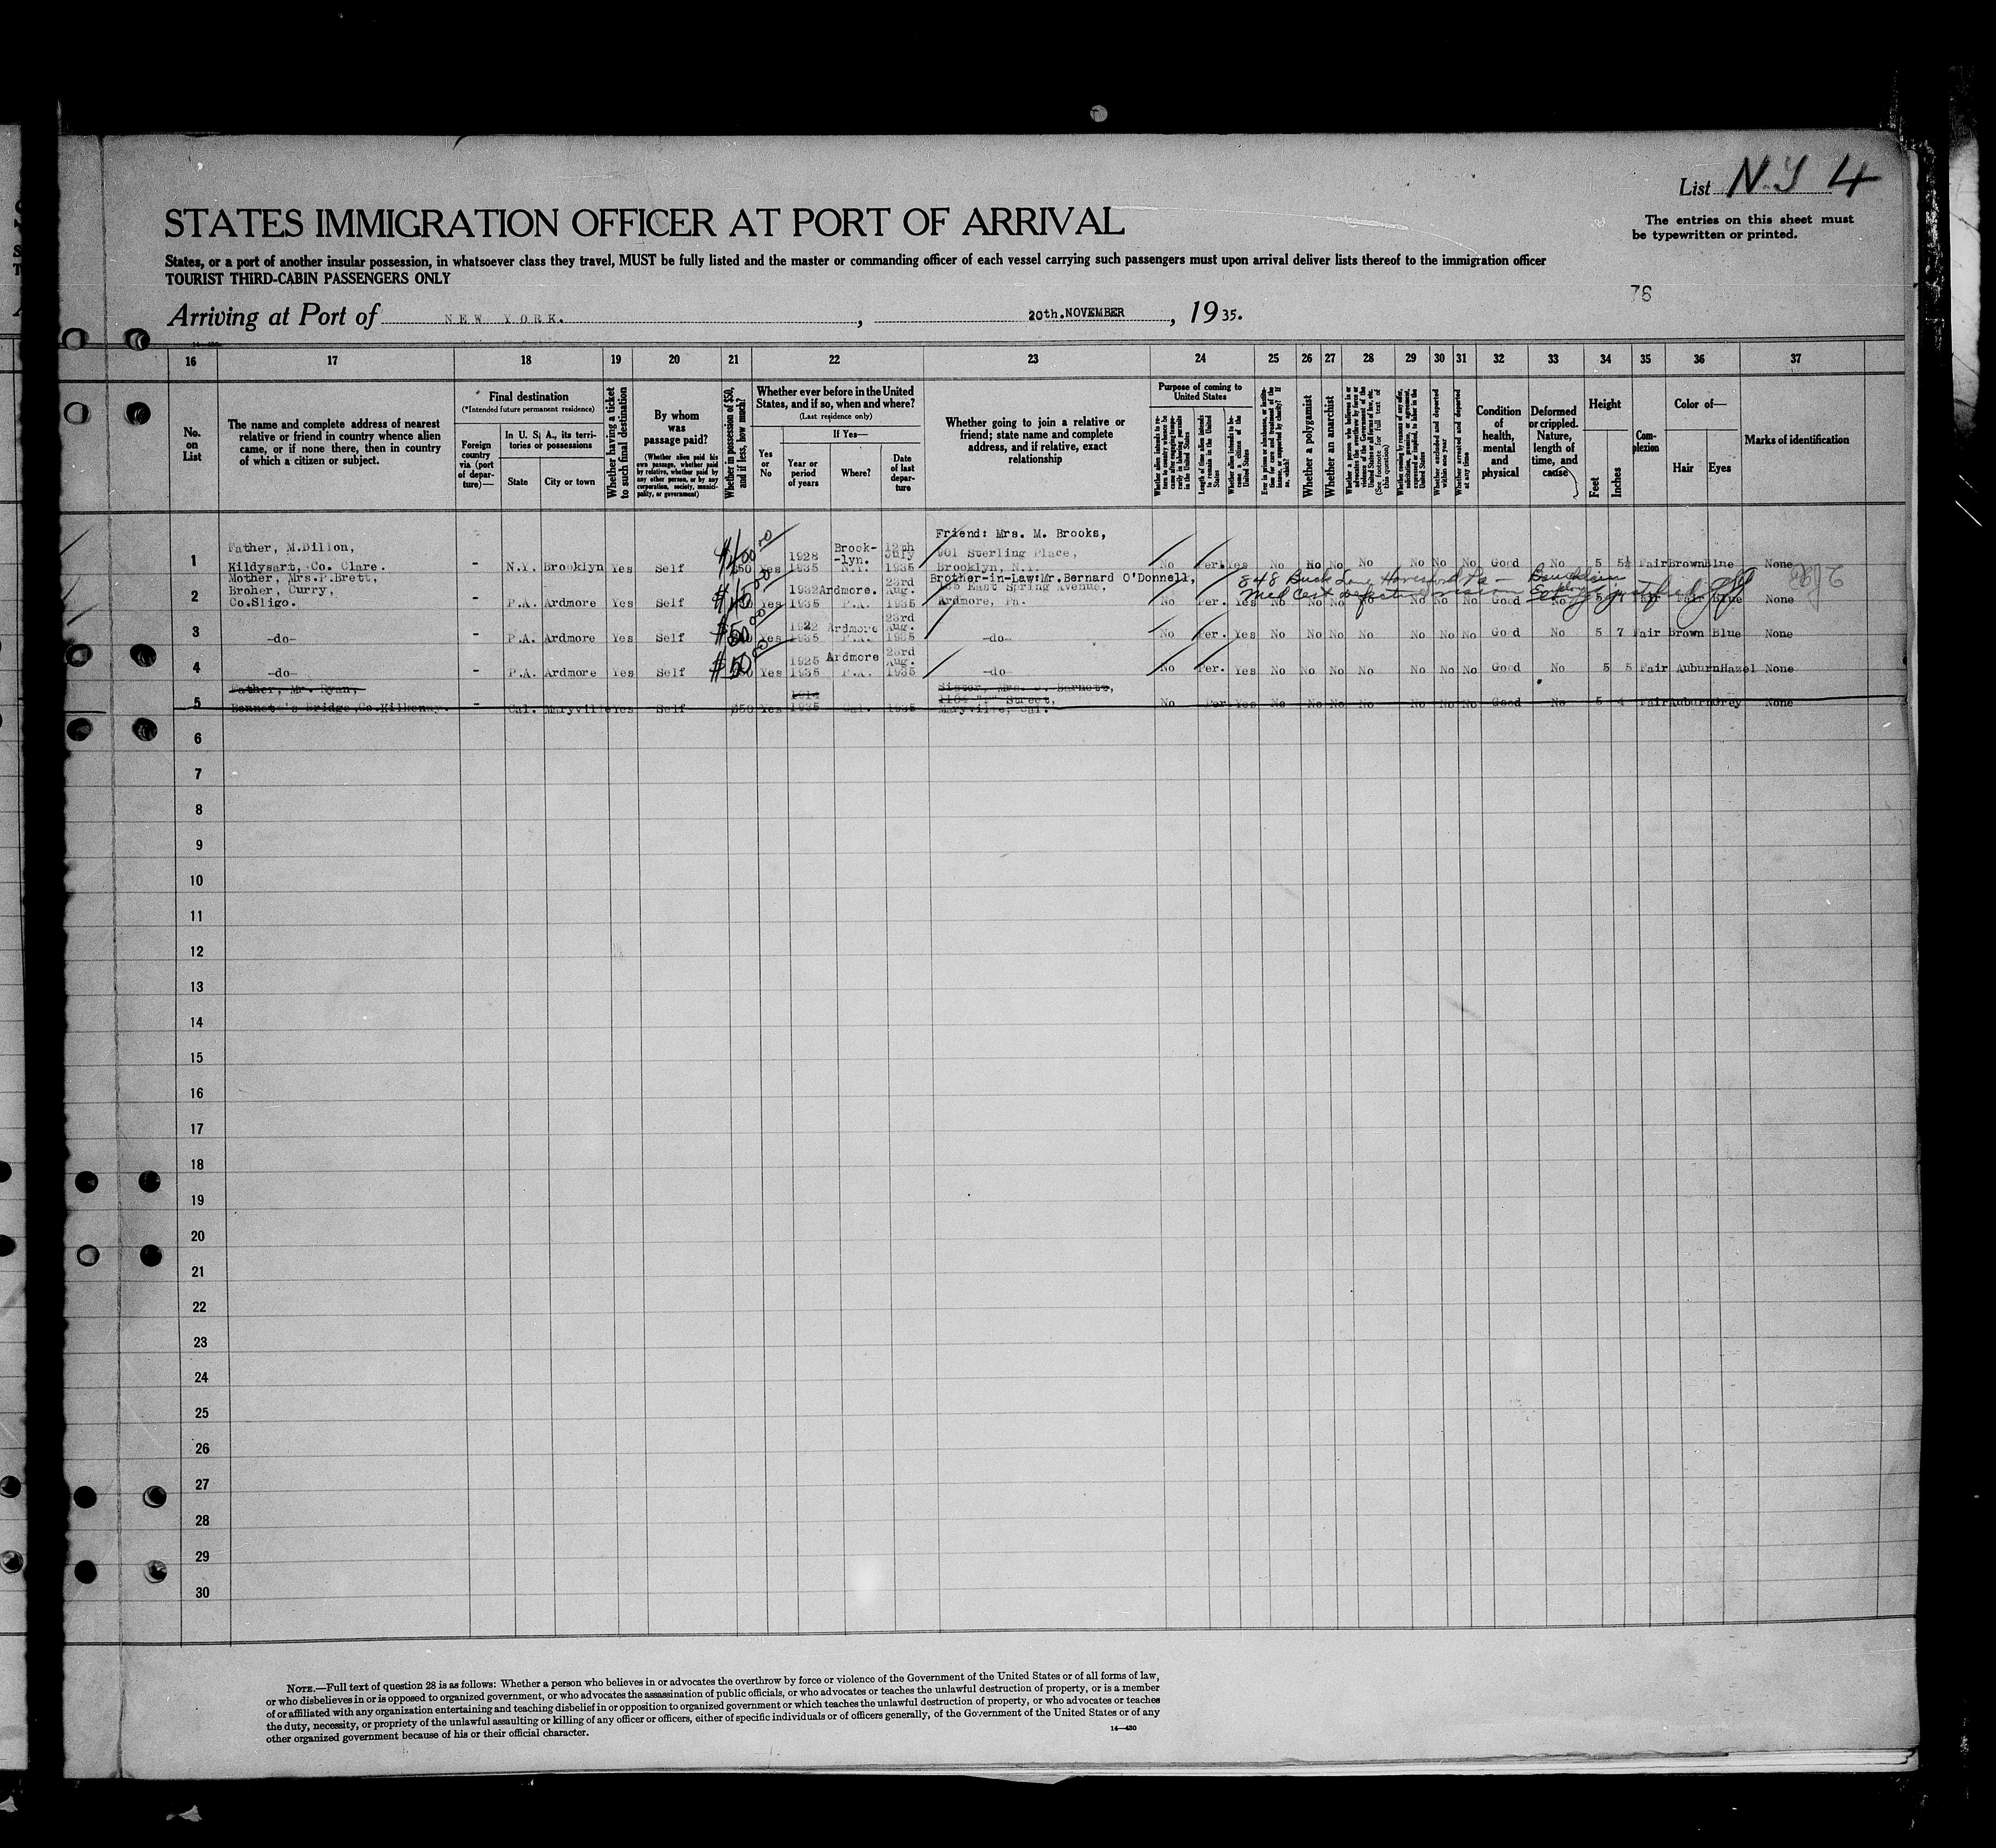 List N.Y 4
STATES IMMIGRATION OFFICER AT PORT OF ARRIVAL
The entries on this sheet must
be typewritten or printed.
States, or a port of another insular possession, in whatsoever class they travel, MUST be fully listed and the master or commanding officer of each vessel carrying such passengers must upon arrival deliver lists thereof to the immigration officer
TOURIST THIRD-CABIN PASSENGERS ONLY
76
Arriving at Port of NEW YORK. , 20th.NOVEMBER , 1935.
16 17 18 19 20 21 22 23 24 25 26 27 28 29 30 31 32 33 34 35 36 37
No.
on
List
The name and complete address of nearest
relative or friend in country whence alien
came, or if none there, then in country
of which a citizen or subject.
Final destination
(*Intended future permanent residence)
Foreign
country
via (port
of depar-
ture)—
In U. S. A., its terri-
tories or possessions
State
City or town
Whether having a ticket
to such final destination
By whom
was
passage paid?
(Whether alien paid his
own passage, whether paid
by relative, whether paid by
any other person, or by any
corporation, society, munici-
pality, or government)
Whether in possession of $50,
and if less, how much?
Whether ever before in the United
States, and if so, when and where?
(Last residence only)
Yes
or
No
If Yes—
Year or
period
of years
Where?
Date
of last
depar-
ture
Whether going to join a relative or
friend; state name and complete
address, and if relative, exact
relationship
Purpose of coming to
United States
Whether alien intends to re-
turn to country whence he
came after engaging tempo-
rarily in laboring pursuits
in the United States
Length of time alien intends
to remain in the United
States
Whether alien intends to be-
come a citizen of the
United States
Whether a polygamist
Whether an anarchist
(See footnote for full text of
this question)
Whether excluded and deported
within one year
Whether arrested and deported
at any time
Condition
of
health,
mental
and
physical
Deformed
or crippled.
Nature,
length of
time, and
cause
Height
Feet
Inches
Com-
plexion
Color of—
Hair
Eyes
Marks of identification
Father, M.Dillon, Brook- 12th Friend: Mrs. M. Brooks,
1928 -lyn. July 901 Sterling Place,
1 Kildysart, Co. Clare. - N.Y. Brooklyn Yes Self $400 $50 Yes 1935 N.Y. 1935 Brooklyn, N.Y. No Per. Yes No No No No No No No Good No 5 5½ Fair Brown Blue None
Mother, Mrs.P.Brett, 23rd Brother-in-Law:Mr.Bernard O'Donnell, 848 Buck Lane Haverford Pa -
Broher, Curry, 1932 Ardmore. Aug. East Spring Avenue, Med Cert defective vision
2 Co.Sligo. - P.A. Ardmore Yes Self Yes 1935 P.A. 1935 Ardmore, Pa. No Per. Yes No No No No No No No Good No 5 Fair Fair Blue None
1922 Ardmore 23rd Aug.
3 -do- - P.A. Ardmore Yes Self $50 Yes 1935 P.A. 1935 -do- No Per. Yes No No No No No No No Good No 5 7 Fair Brown Blue None
1925 Ardmore 23rd Aug.
4 -do- - P.A. Ardmore Yes Self $50 Yes 1935 P.A. 1935 -do- No Per. Yes No No No No No No No Good No 5 5 Fair Auburn Hazel None
Father, Mr. Ryan, 1914 Sister, Mrs. J. Barnett,
1104 "F" Street,
5 Bennett's Bridge,Co.Kilkenny. - Cal. Maryville Yes Self $50 Yes 1935 Cal. 1935 Maryville, Cal. No Per Yes No No No No No No No Good No 5 4 Fair Auburn Grey None
6
7
8
9
10
11
12
13
14
15
16
17
18
19
20
21
22
23
24
25
26
27
28
29
30
NOTE.—Full text of question 28 is as follows: Whether a person who believes in or advocates the overthrow by force or violence of the Government of the United States or of all forms of law,
or who disbelieves in or is opposed to organized government, or who advocates the assassination of public officials, or who advocates or teaches the unlawful destruction of property, or is a member
of or affiliated with any organization entertaining and teaching disbelief in or opposition to organized government or which teaches the unlawful destruction of property, or who advocates or teaches
the duty, necessity, or propriety of the unlawful assaulting or killing of any officer or officers, either of specific individuals or of officers generally, of the Government of the United States or of any
other organized government because of his or their official character.
14—430